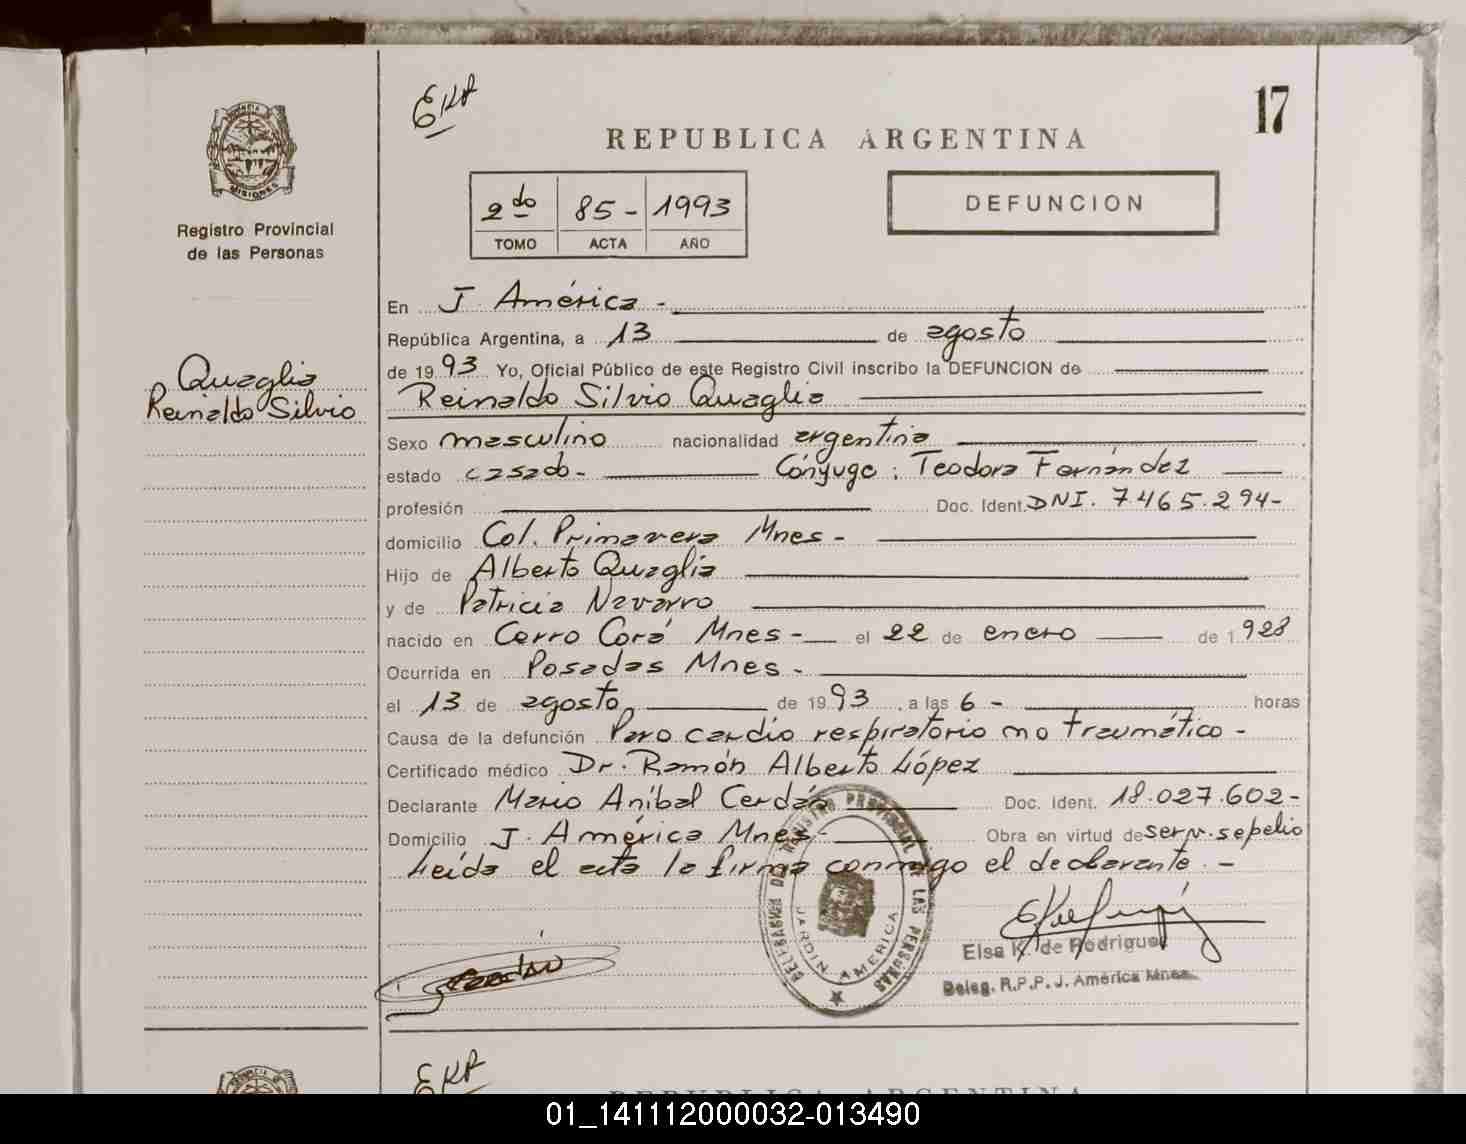 EKR
17
REPUBLICA ARGENTINA
PROVINCIA
MISIONES
Registro Provincial
de las Personas
2do 85- 1993
TOMO ACTA AÑO
DEFUNCION
Quaglia
Reinaldo Silvio
En J. América -
República Argentina, a 13 de agosto
de 1993 Yo, Oficial Público de este Registro Civil inscribo la DEFUNCION de
Reinaldo Silvio Quaglia
Sexo masculino nacionalidad argentina
estado casado- Cónyuge: Teodora Fernández
profesión Doc. Ident. DNI. 7.465.294-
domicilio Col. Primavera Mnes -
Hijo de Alberto Quaglia
y de Patricia Navarro
nacido en Cerro Corá Mnes - el 22 de enero de 1.928
Ocurrida en Posadas Mnes -
el 13 de agosto de 1993 . a las 6 - horas
Causa de la defunción Paro cardio respiratorio no traumático -
Certificado médico Dr. Ramón Alberto López
Declarante Mario Aníbal Cerdán Doc. Ident. 18.027.602-
Domicilio J. América Mnes - Obra en virtud de serv. sepelio
Leída el acta la firma conmigo el declarante. -
DELEGACION DE REGISTRO PROVINCIAL DE LAS PERSONAS
JARDIN AMERICA
Elsa K. de Rodriguez
Deleg. R.P.P. J. América Mnes.
EKR
REPUBLICA ARGENTINA
01_141112000032-013490